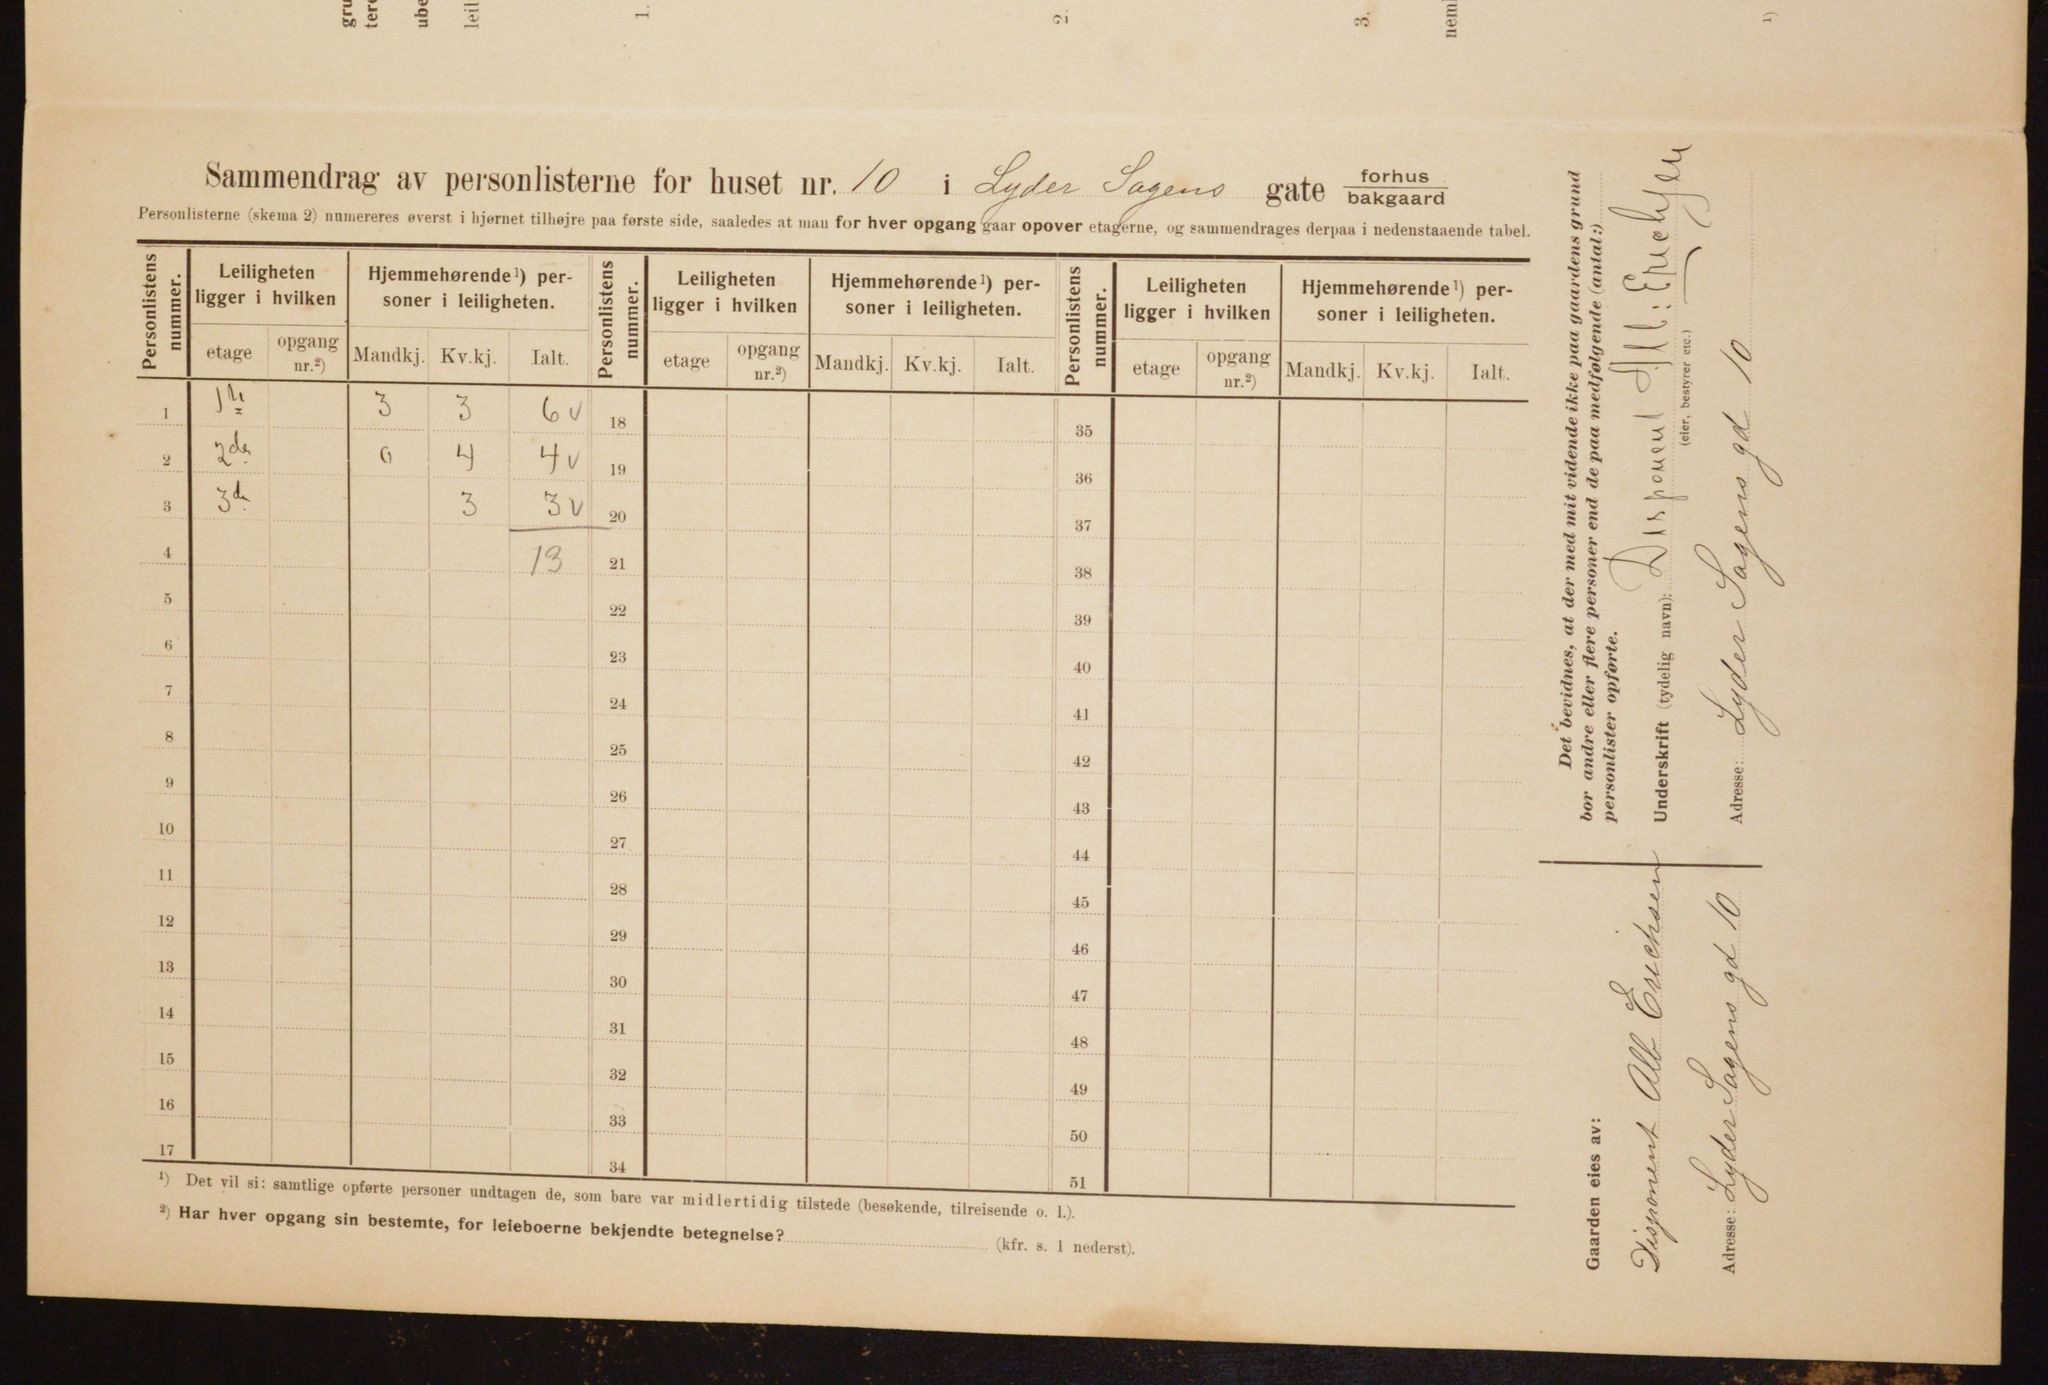 gru
tere
ube
leil
1.
2.
3.
neml
1)
Sammendrag av personlisterne for huset nr. 10 i Lyder Sagens gate forhus bakgaard
Personlisterne (skema 2) numereres øverst i hjørnet tilhøjre paa første side, saaledes at man for hver opgang gaar opover etagerne, og sammendrages derpaa i nedenstaaende tabel.
Personlistens nummer. Leiligheten ligger i hvilken Hjemmehørende¹) personer i leiligheten. Personlistens nummer. Leiligheten ligger i hvilken Hjemmehørende¹) personer i leiligheten. Personlistens nummer. Leiligheten ligger i hvilken Hjemmehørende¹) personer i leiligheten.
etage opgang nr.²) Mandkj. Kv.kj. Ialt. etage opgang nr.²) Mandkj. Kv.kj. Ialt. etage opgang nr.²) Mandkj. Kv.kj. Ialt.
1 1ste 3 3 6 v 18 35
2 2den 0 4 4 v 19 36
3 3de 3 3 v 20 37
4 13 21 38
5 22 39
6 23 40
7 24 41
8 25 42
9 26 43
10 27 44
11 28 45
12 29 46
13 30 47
14 31 48
15 32 49
16 33 50
17 34 51
¹) Det vil si: samtlige opførte personer undtagen de, som bare var midlertidig tilstede (besøkende, tilreisende o. l.).
²) Har hver opgang sin bestemte, for leieboerne bekjendte betegnelse? (kfr. s. 1 nederst).
Det bevidnes, at der med mit vidende ikke paa gaardens grund
bor andre eller flere personer end de paa medfølgende (antal:)
personlister opførte.
Underskrift (tydelig navn): Disponent Alb: Erichsen
(eier, bestyrer etc.)
Adresse: Lyder Sagens gd 10
Gaarden eies av:
Disponent Alb Erichsen
Adresse: Lyder Sagens gd 10